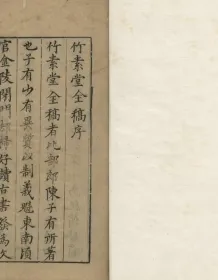 竹素堂全稿序
竹素堂全稿者比部郎陳子有所著
也子有少有異質以制義魁東南頃
官金陵閉門却掃好讀古書發爲文